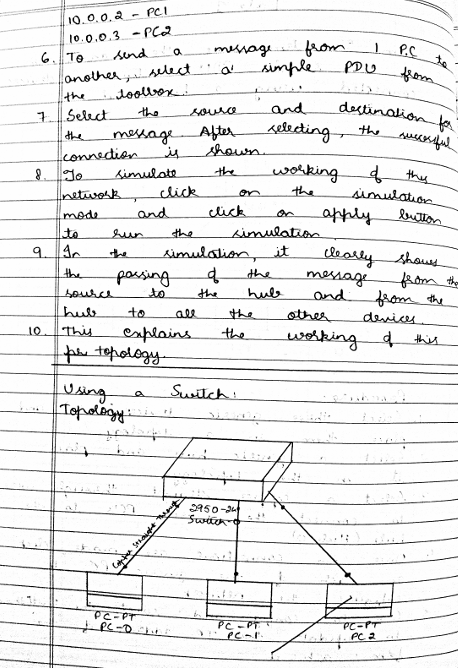 10.0.0.2 - PC1
10.0.0.3 - PC2
6. To send a message from 1 PC to
another, select a simple PDU from
the toolbox.
7 Select the source and destination for
the message. After selecting, the successful
connection is shown.
8. To simulate the working of this
network, click on the simulation
mode and click on apply button
to run the simulation
9. In the simulation, it clearly shows
the passing of the message from the
source to the hub and from the
hub to all the other devices
10. This explains the working of this
topology.
Using a Switch:
Topology:
2950-24
Switch
Copper straight through
PC-PT
PC-0
PC-PT
PC-1
PC-PT
PC 2